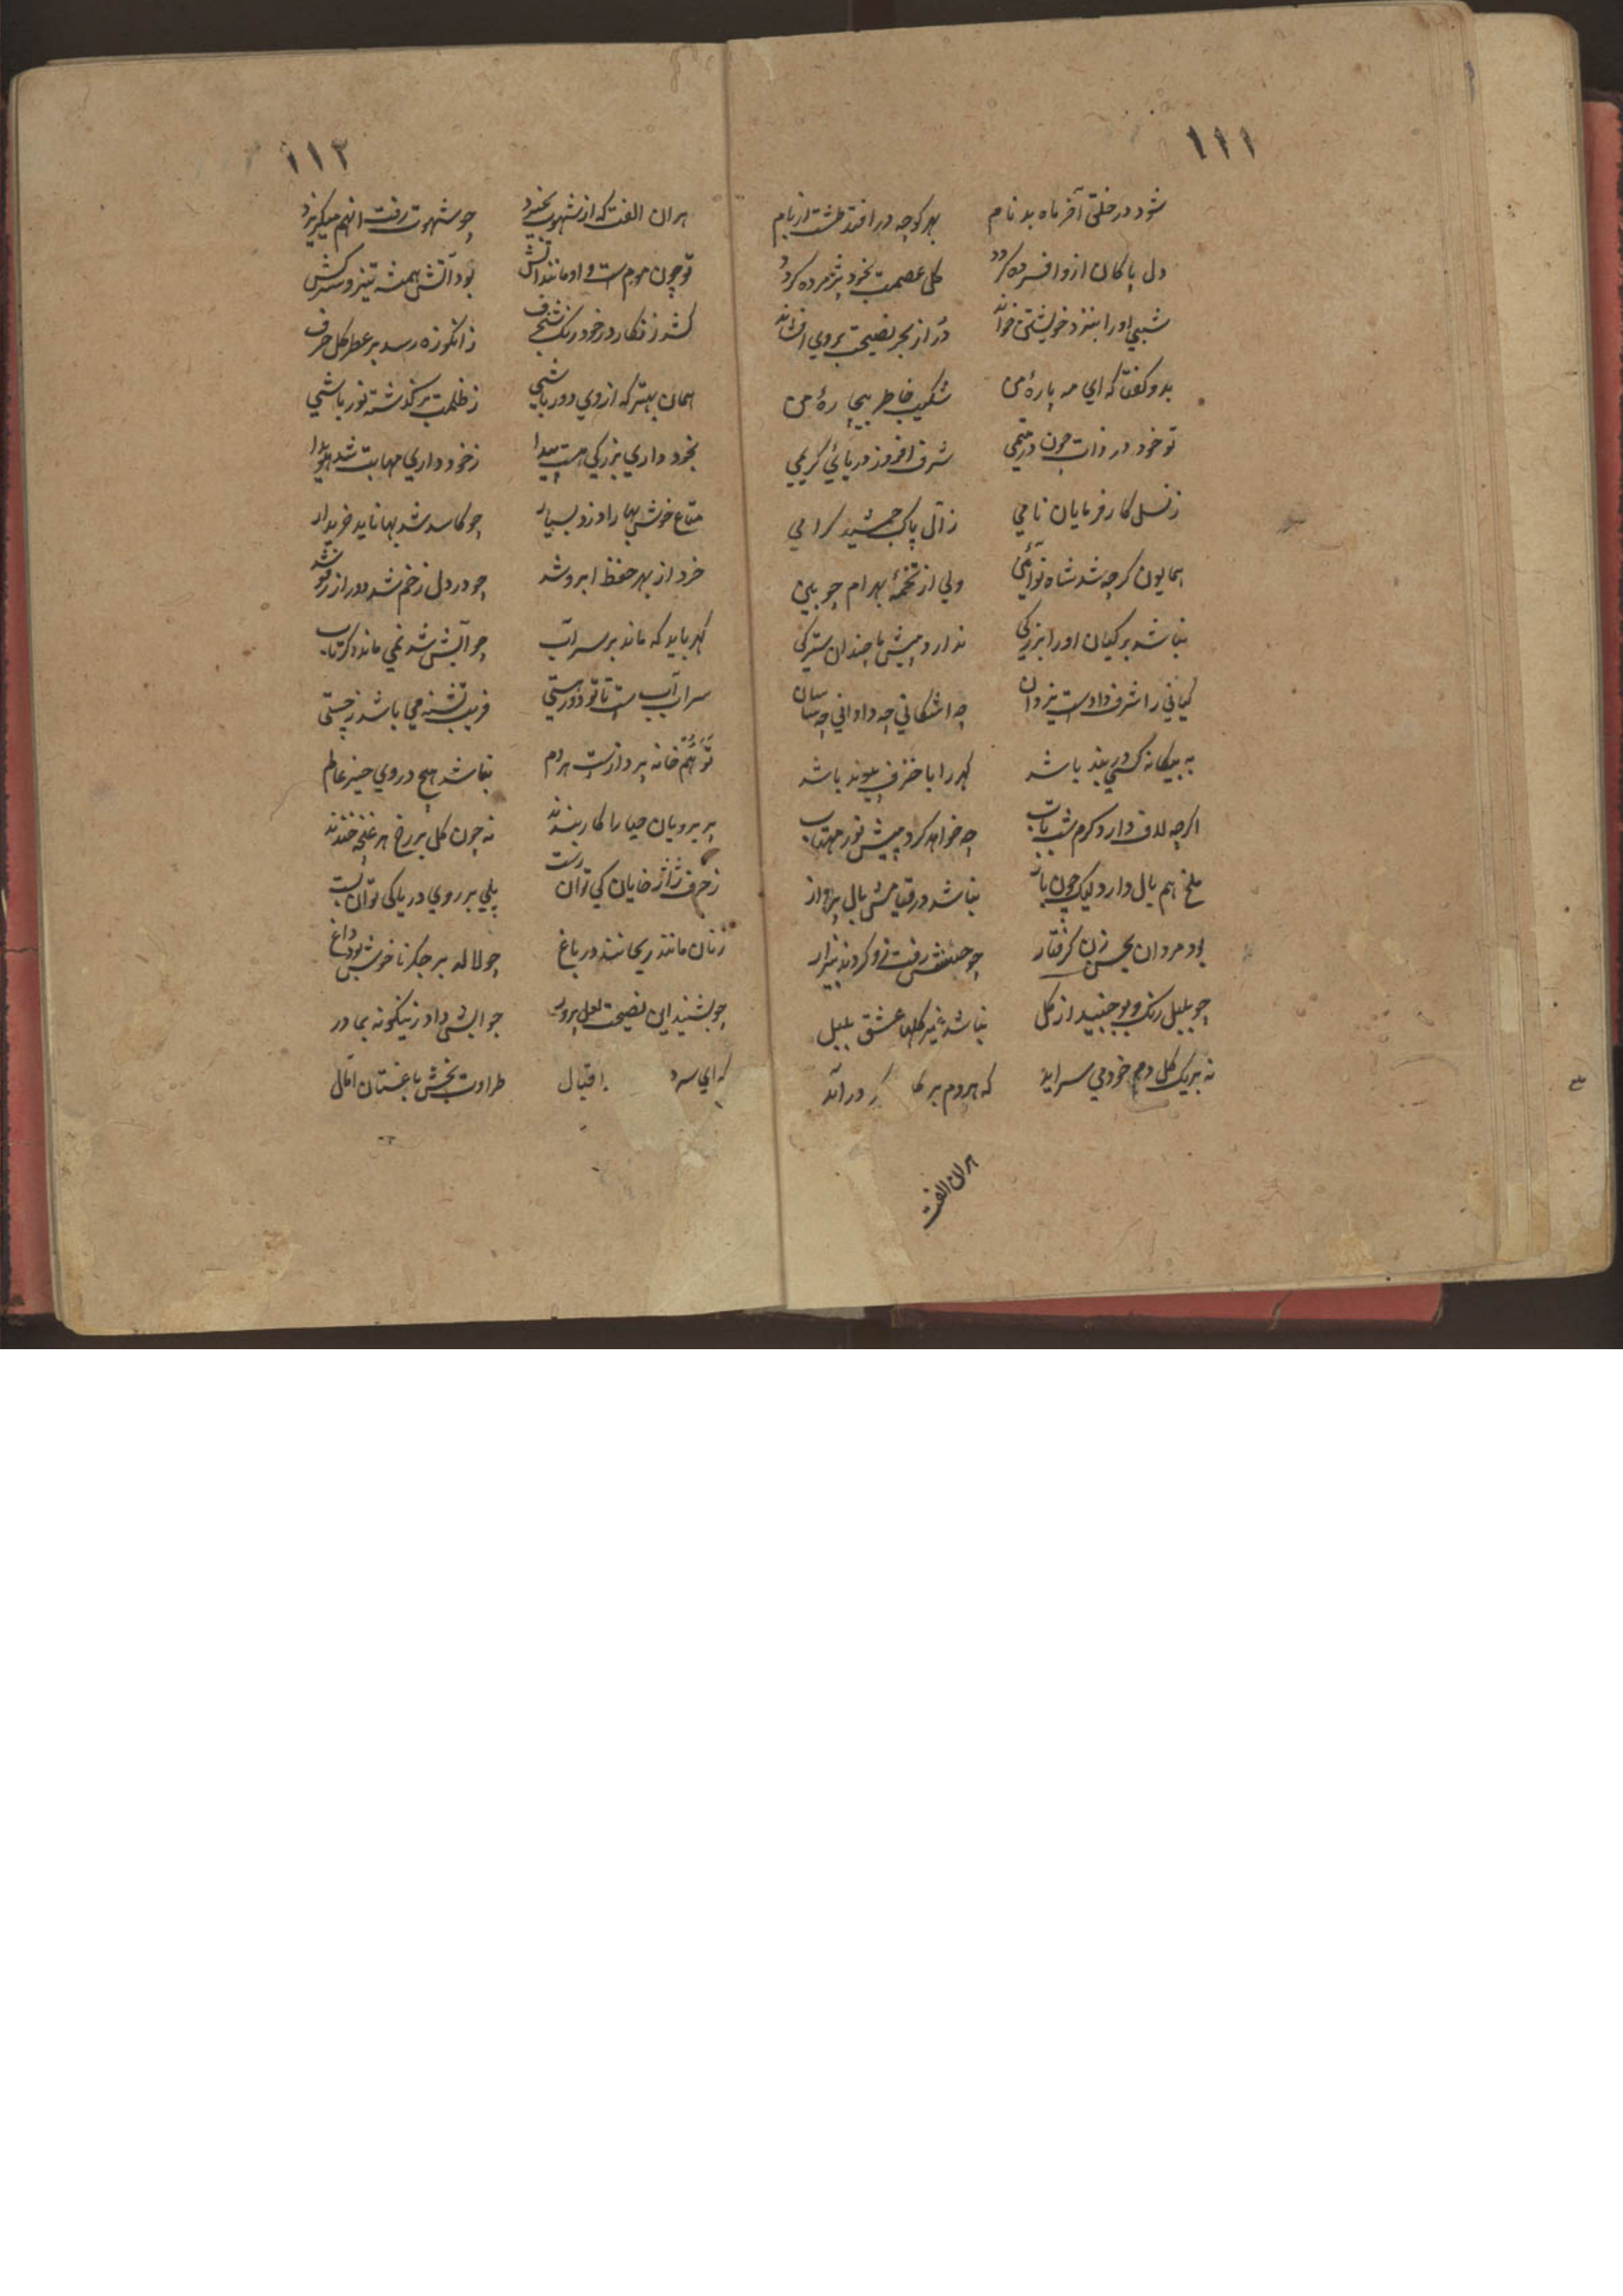 ١١١
شود در خلق آخر ماه بدنام بهر کوچه در افتد طشت از بام
دل پاکان ازو افسرده کردد کل عصمت بخود پژمرده کردد
شبی اورا بنزد خویشتن خواند در از بحر نصیحت بروی افشاند
بدو کفتا که ای مه پارهٔ من شکیب خاطر بیچارهٔ من
تو خود در ذات چون در یتیمی شرف افروز دریائی کریمی
ز نسل کار فرمایان نامی ز آل پاک جمشید کرامی
همایون کرچه شد شاه نو آئین ولی از تخمهٔ بهرام چوبین
نباشد بر کیان اورا بزرکی ندارد پیش ما چندان سترکی
کیانی را شرف دادست یزدان چه اشکانی چه دادانی چه ساسان
به بیکانه کسی در بند باشد کهر را با خزف پیوند باشد
اکرچه لاف دارد کرم شب تاب چه خواهد کرد پیش نور مهتاب
ملخ هم بال دارد لیک چون باز نباشد در قفایش بال پرواز
بود مردان بحسن زن کرفتار چو حسنش رفت زو کردند بیزار
چو بلبل رنک و بو جنبید از کل نباشد غیر کلها عشق بلبل
نه بر یک کل دم خود می سراید که هر دم بر در آید
هران الفت
١١٢
هران الفت که از شهوت بخیزد چو شهوت رفت انهم میکریزد
تو چون موم ست و او مانند اتش بود آتش همیشه تیز و سرکش
کشد زنکار در خود رنک شنجرف ز انکوزه رسد بر عطر کل حرف
همان بهتر که از وی دور باشی ز ظلمت بر کذشته نور باشی
بخود داری بزرکی هست پیدا ز خود داری مهابت شد هویدا
متاع خوش بها را دزد بسیار چو کاسد شد بها ناید خریدار
خرد از بهر حفظ ابرو شد چو در دل زخم شد دور از رفو شد
کهر باید که ماند بر سر آب چو آبش شد نمی ماند دکر تاب
سراب آب ست تا تو دور هستی فریب تشنه می باشد ز چستی
توهم خانه پردازست هر دم نباشد هیچ در وی چیز عالم
پریرویان حیا را کار بندند نه چون کل بر رخ هر غنچه خندند
ز حرف ژاژ خایان کی توان رست پلی بر روی دریا کی توان بست
زنان مانند ریحانند در باغ چو لاله بر جکر ناخوش بود داغ
چو بشنید این نصیحت لعل پرور جوابش داد زینکونه بمادر
که ای سرو اقبال طراوت بخش باغستان آمال